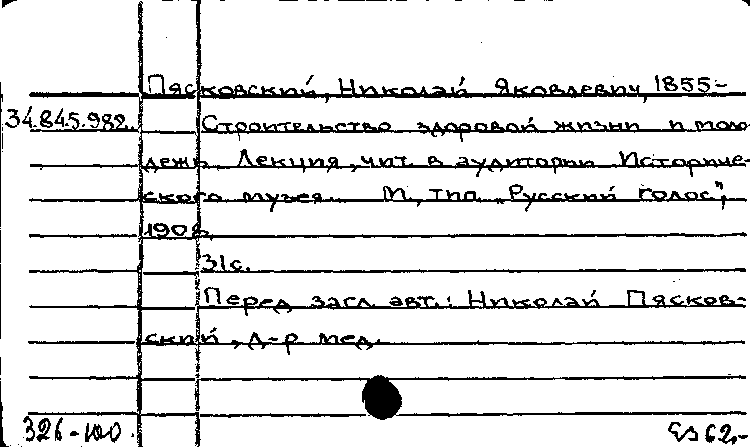 Пясковский, Николай Яковлевич, 1855-
34.845.982. Строительство здоровой жизни и моло
дежь. Лекция, чит. в аудитории Историче-
ского музея. М., тип. „Русский голос",
1908.
31с.
Перед загл. авт.: Николай Пясков-
ский, д-р мед.
326-100. 62.-